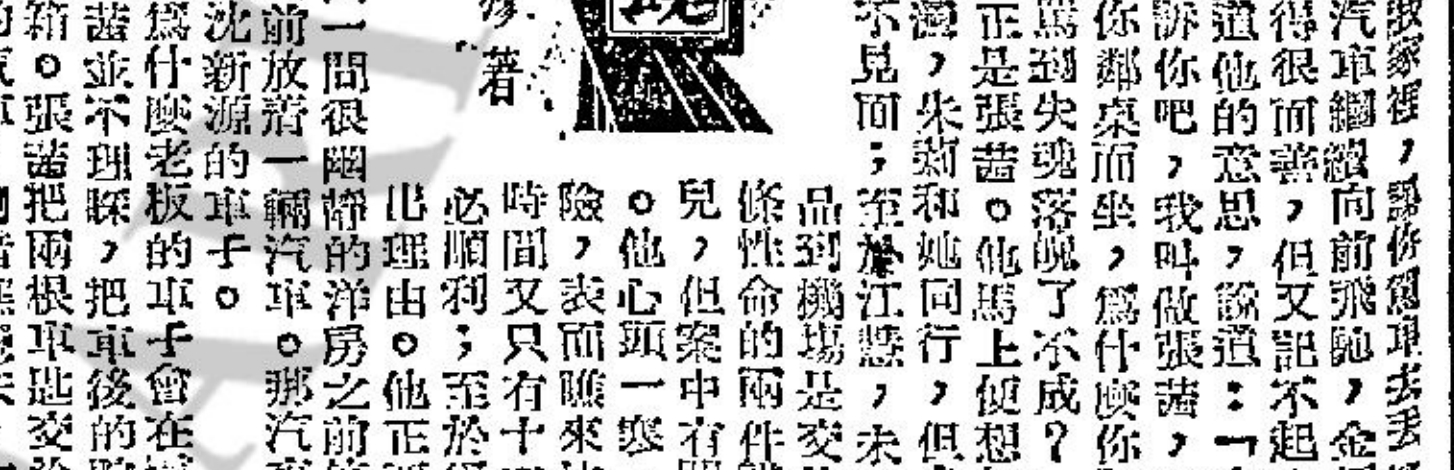 家裡，
汽車繼續向前飛馳，金
得很面善，但又記不起
道他的意思，說道：「
訴你吧，我叫做張茜，
你鄰桌而坐，爲什麼你
罵到失魂落魄了不成？
正是張茜。他馬上便想
，朱莉和她同行，但
不見面；至於江慧，未
品到機場是交
條性命的兩件
兒，但案中有
。他心頭一寒
險，表面瞧來
時間又只有十
必順利；至於
出理由。他正
著
一間很幽靜的洋房之前
前放着一輛汽車。那汽
沈新源的車子。
爲什麼老板的車子會在
茜並不理睬，把車後的
箱。張茜把兩根車匙交